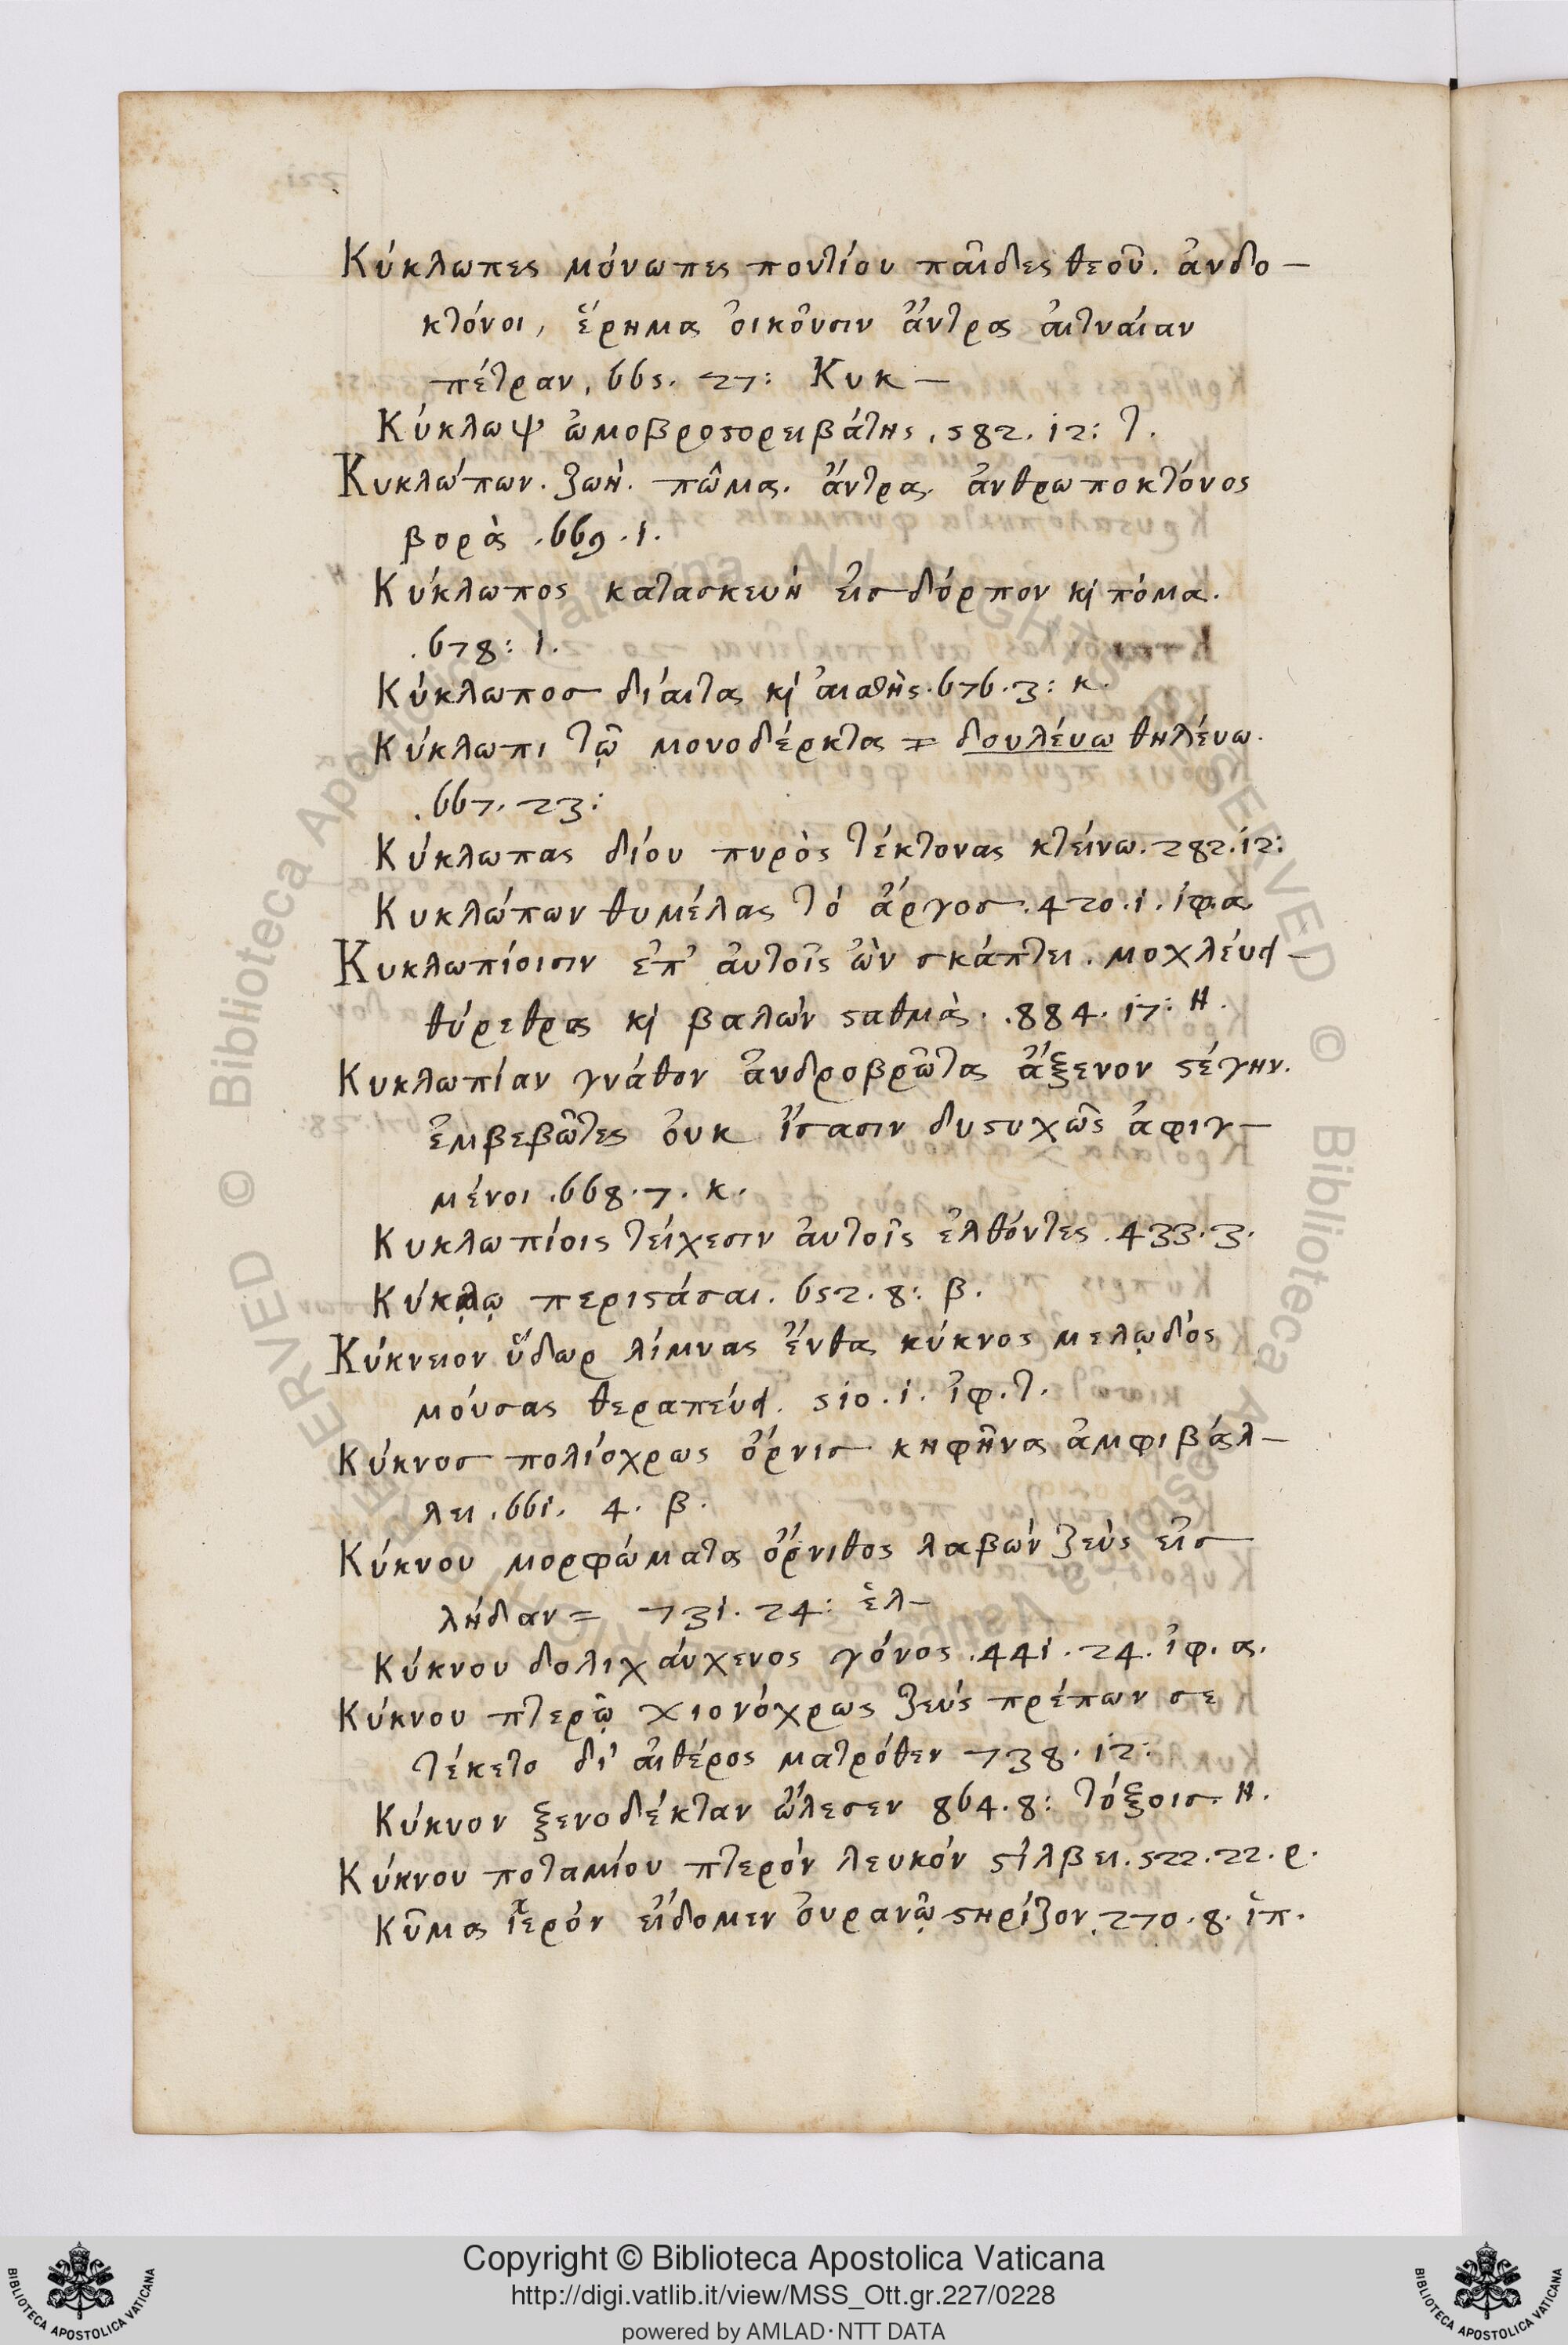 Κύκλωπες μόνωπες ποντίου παῖδες θεοῦ. ἀνδο-
κτόνοι, ἔρημα ὀικοῦσιν ἄντρα ἀιτναίαν
πέτραν, 665. 27: Κυκ-
Κύκλωψ ὠμοβροςορειβάτης, 582. 12: τ.
Κυκλώπων. ζωὴ. πῶμα. ἄντρα. ἀνθρωποκτόνος
βορὰ .669.1.
Κύκλωπος κατασκευὴ εἰσ δόρπον κὶ πόμα.
.678: 1.
Κύκλωποσ δίαιτα κὶ 676.3: κ.
Κύκλωπι τῷ μονοδέρκτα = δουλέυω θηλέυω.
.667. 23:
Κύκλωπας δίου πυρὸς τέκτονας κτείνω. 282.12:
Κυκλώπων θυμέλας τὸ ἄργοσ. 420.1. ἰφ.α
Κυκλωπίοισιν ἐπ' ἀυτοῖς ὢν σκάπτει. μοχλέυει
θύρεθρα κὶ βαλὼν ϛαθμὰ. .884. 17: Η.
Κυκλωπίαν γνάθον ἀνδροβρῶτα ἄξενον ϛέγην.
ἐμβεβῶτες ὀυκ ἴσασιν δυϛυχῶς ἀφιγ-
μένοι .668.7. κ.
Κυκλωπίοις τείχεσιν ἀυτοῖς ἐλθόντες .433.3.
Κύκλῳ περιϛάσαι. 652. 8: β.
Κύκνειον ὕδωρ λίμνας ἔνθα κύκνος μελῳδὸς
μόυσας θεραπέυει. 510. 1. ἰφ.τ.
Κύκνοσ πολιόχρως ὄρνισ κηφῆνα ἀμφιβάλ-
λει .661. 4. β.
Κύκνου μορφώματα ὄρνιθος λαβὼν ζεὺς εἰσ
λήδαν = 731. 24: ἑλ-
Κύκνου δολιχάυχενος γόνος .441. 24. ἰφ. α.
Κύκνου πτερῷ χιονόχρως ζεὺς πρέπων σε
τέκετο δι' ἀιθέρος ματρόθεν 738. 12:
Κύκνον ξενοδέκταν ὤλεσεν 864. 8: τόξοισ. Η.
Κύκνου ποταμίου πτερὸν λευκὸν ϛίλβει. 522. 22. ρ.
Κῦμα ἱερὸν ἔιδομεν ὀυρανῷ ϛηρίζον 270. 8. ἱπ.
Copyright © Biblioteca Apostolica Vaticana
http://digi.vatlib.it/view/MSS_Ott.gr.227/0228
powered by AMLAD·NTT DATA